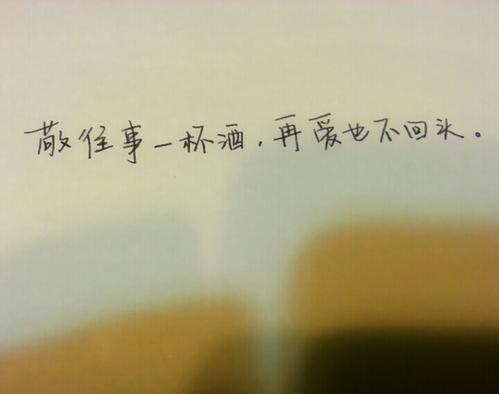 敬往事一杯酒，再爱也不回头。